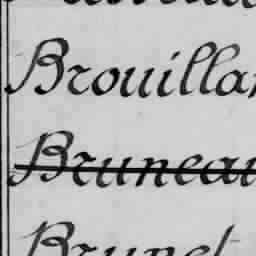 Brouilla
Brunea
Brunet